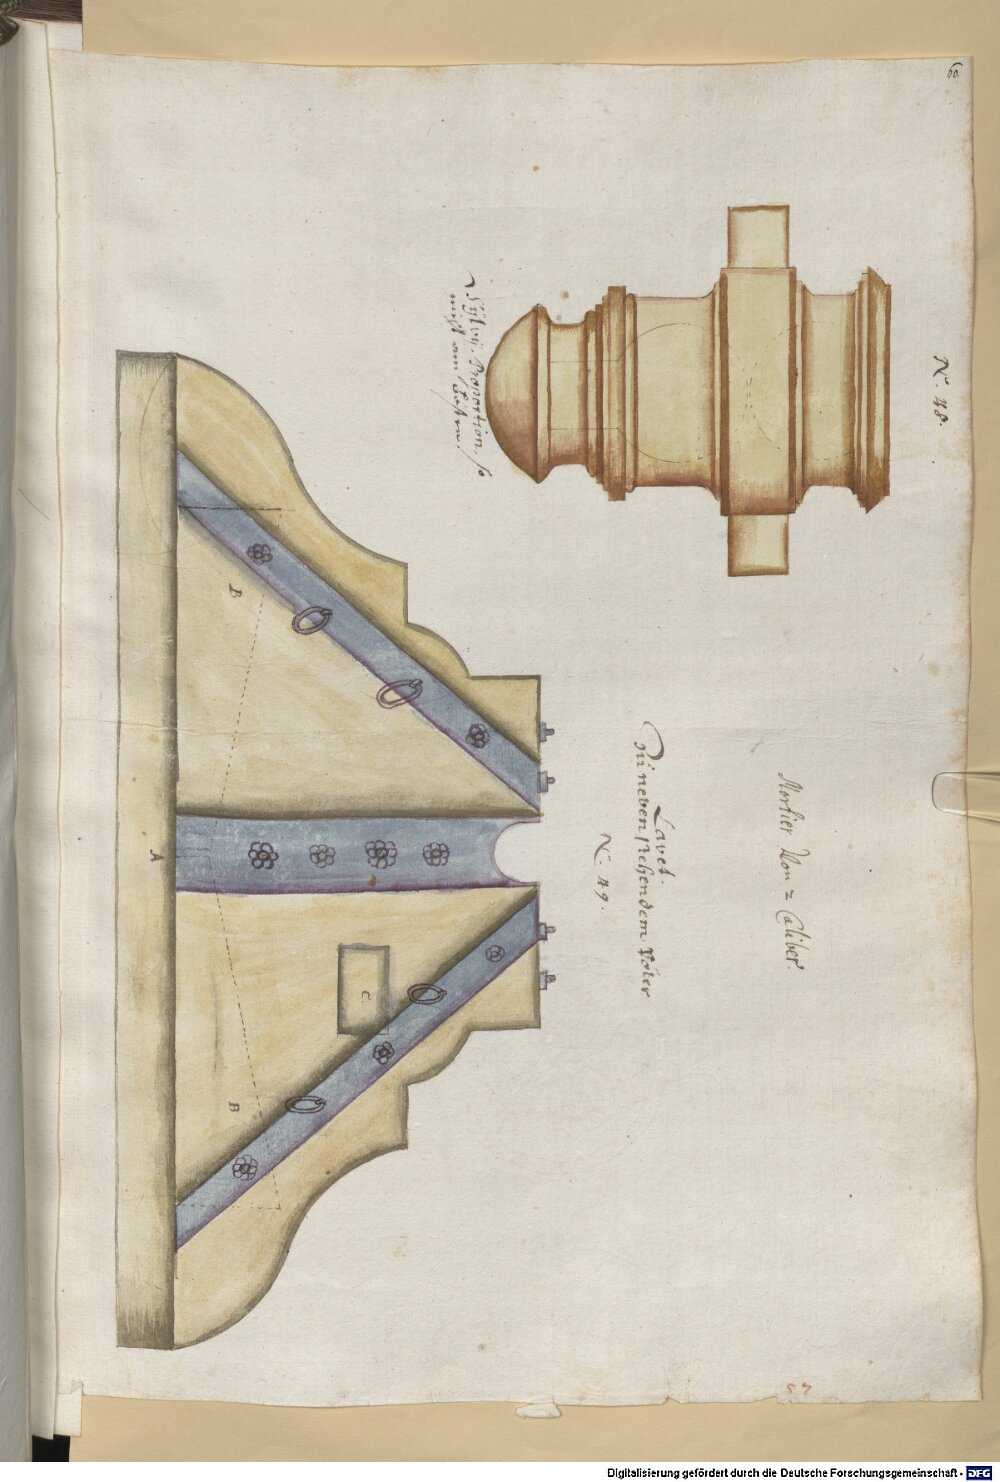 60.
N. 48.
Mortier Von 2 Caliber.
Lavet.
Zu neben stehendem Pöler
N. 49.
Sylvij. Proportion. so
mist am besten.
B
A
C
B
57
Digitalisierung gefördert durch die Deutsche Forschungsgemeinschaft - DFG